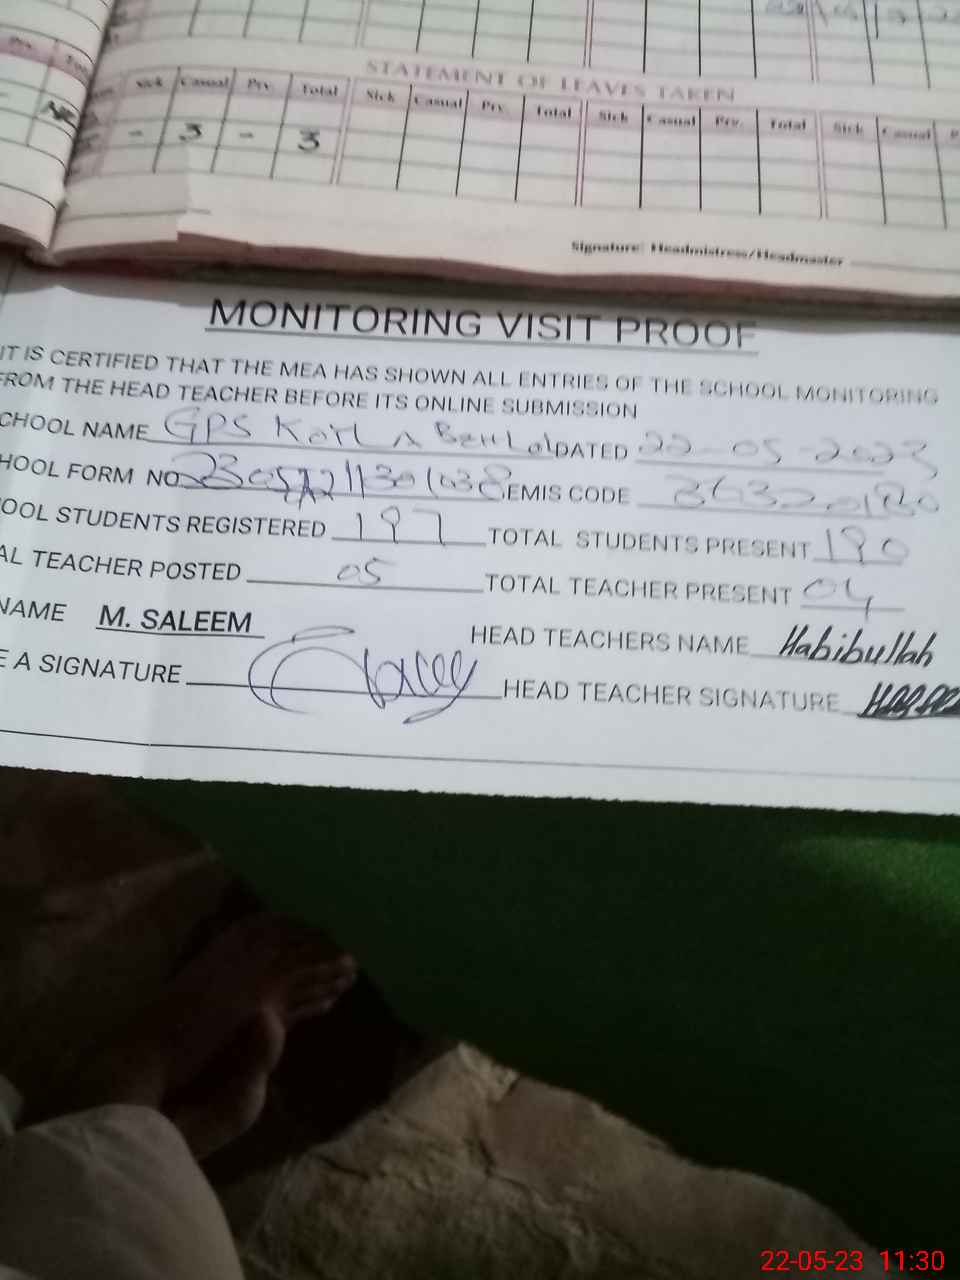 STATEMENT OF LEAVES TAKEN
Sick Casual Prv. Total Sick Casual Prv. Total Sick Casual Prv. Total Sick Casual P
- 3 - 3
Signature: Headmistress/Headmaster
MONITORING VISIT PROOF
IT IS CERTIFIED THAT THE MEA HAS SHOWN ALL ENTRIES OF THE SCHOOL MONITORING
FROM THE HEAD TEACHER BEFORE ITS ONLINE SUBMISSION
CHOOL NAME GPS DATED 22-05-2023
HOOL FORM NO EMIS CODE
OOL STUDENTS REGISTERED 197 TOTAL STUDENTS PRESENT 190
AL TEACHER POSTED 05 TOTAL TEACHER PRESENT 04
NAME M. SALEEM HEAD TEACHERS NAME Habibullah
E A SIGNATURE HEAD TEACHER SIGNATURE
22-05-23 11:30